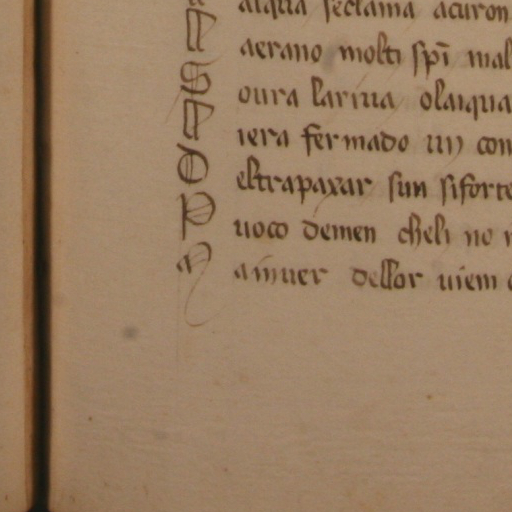 alqua seclama acuron
T aerano molti spī mal
S oura lariua olaiqua
T iera fermado un con
O eltrapaxar sun siforte
P uoco demen cheli no
M ainuer dellor uiem